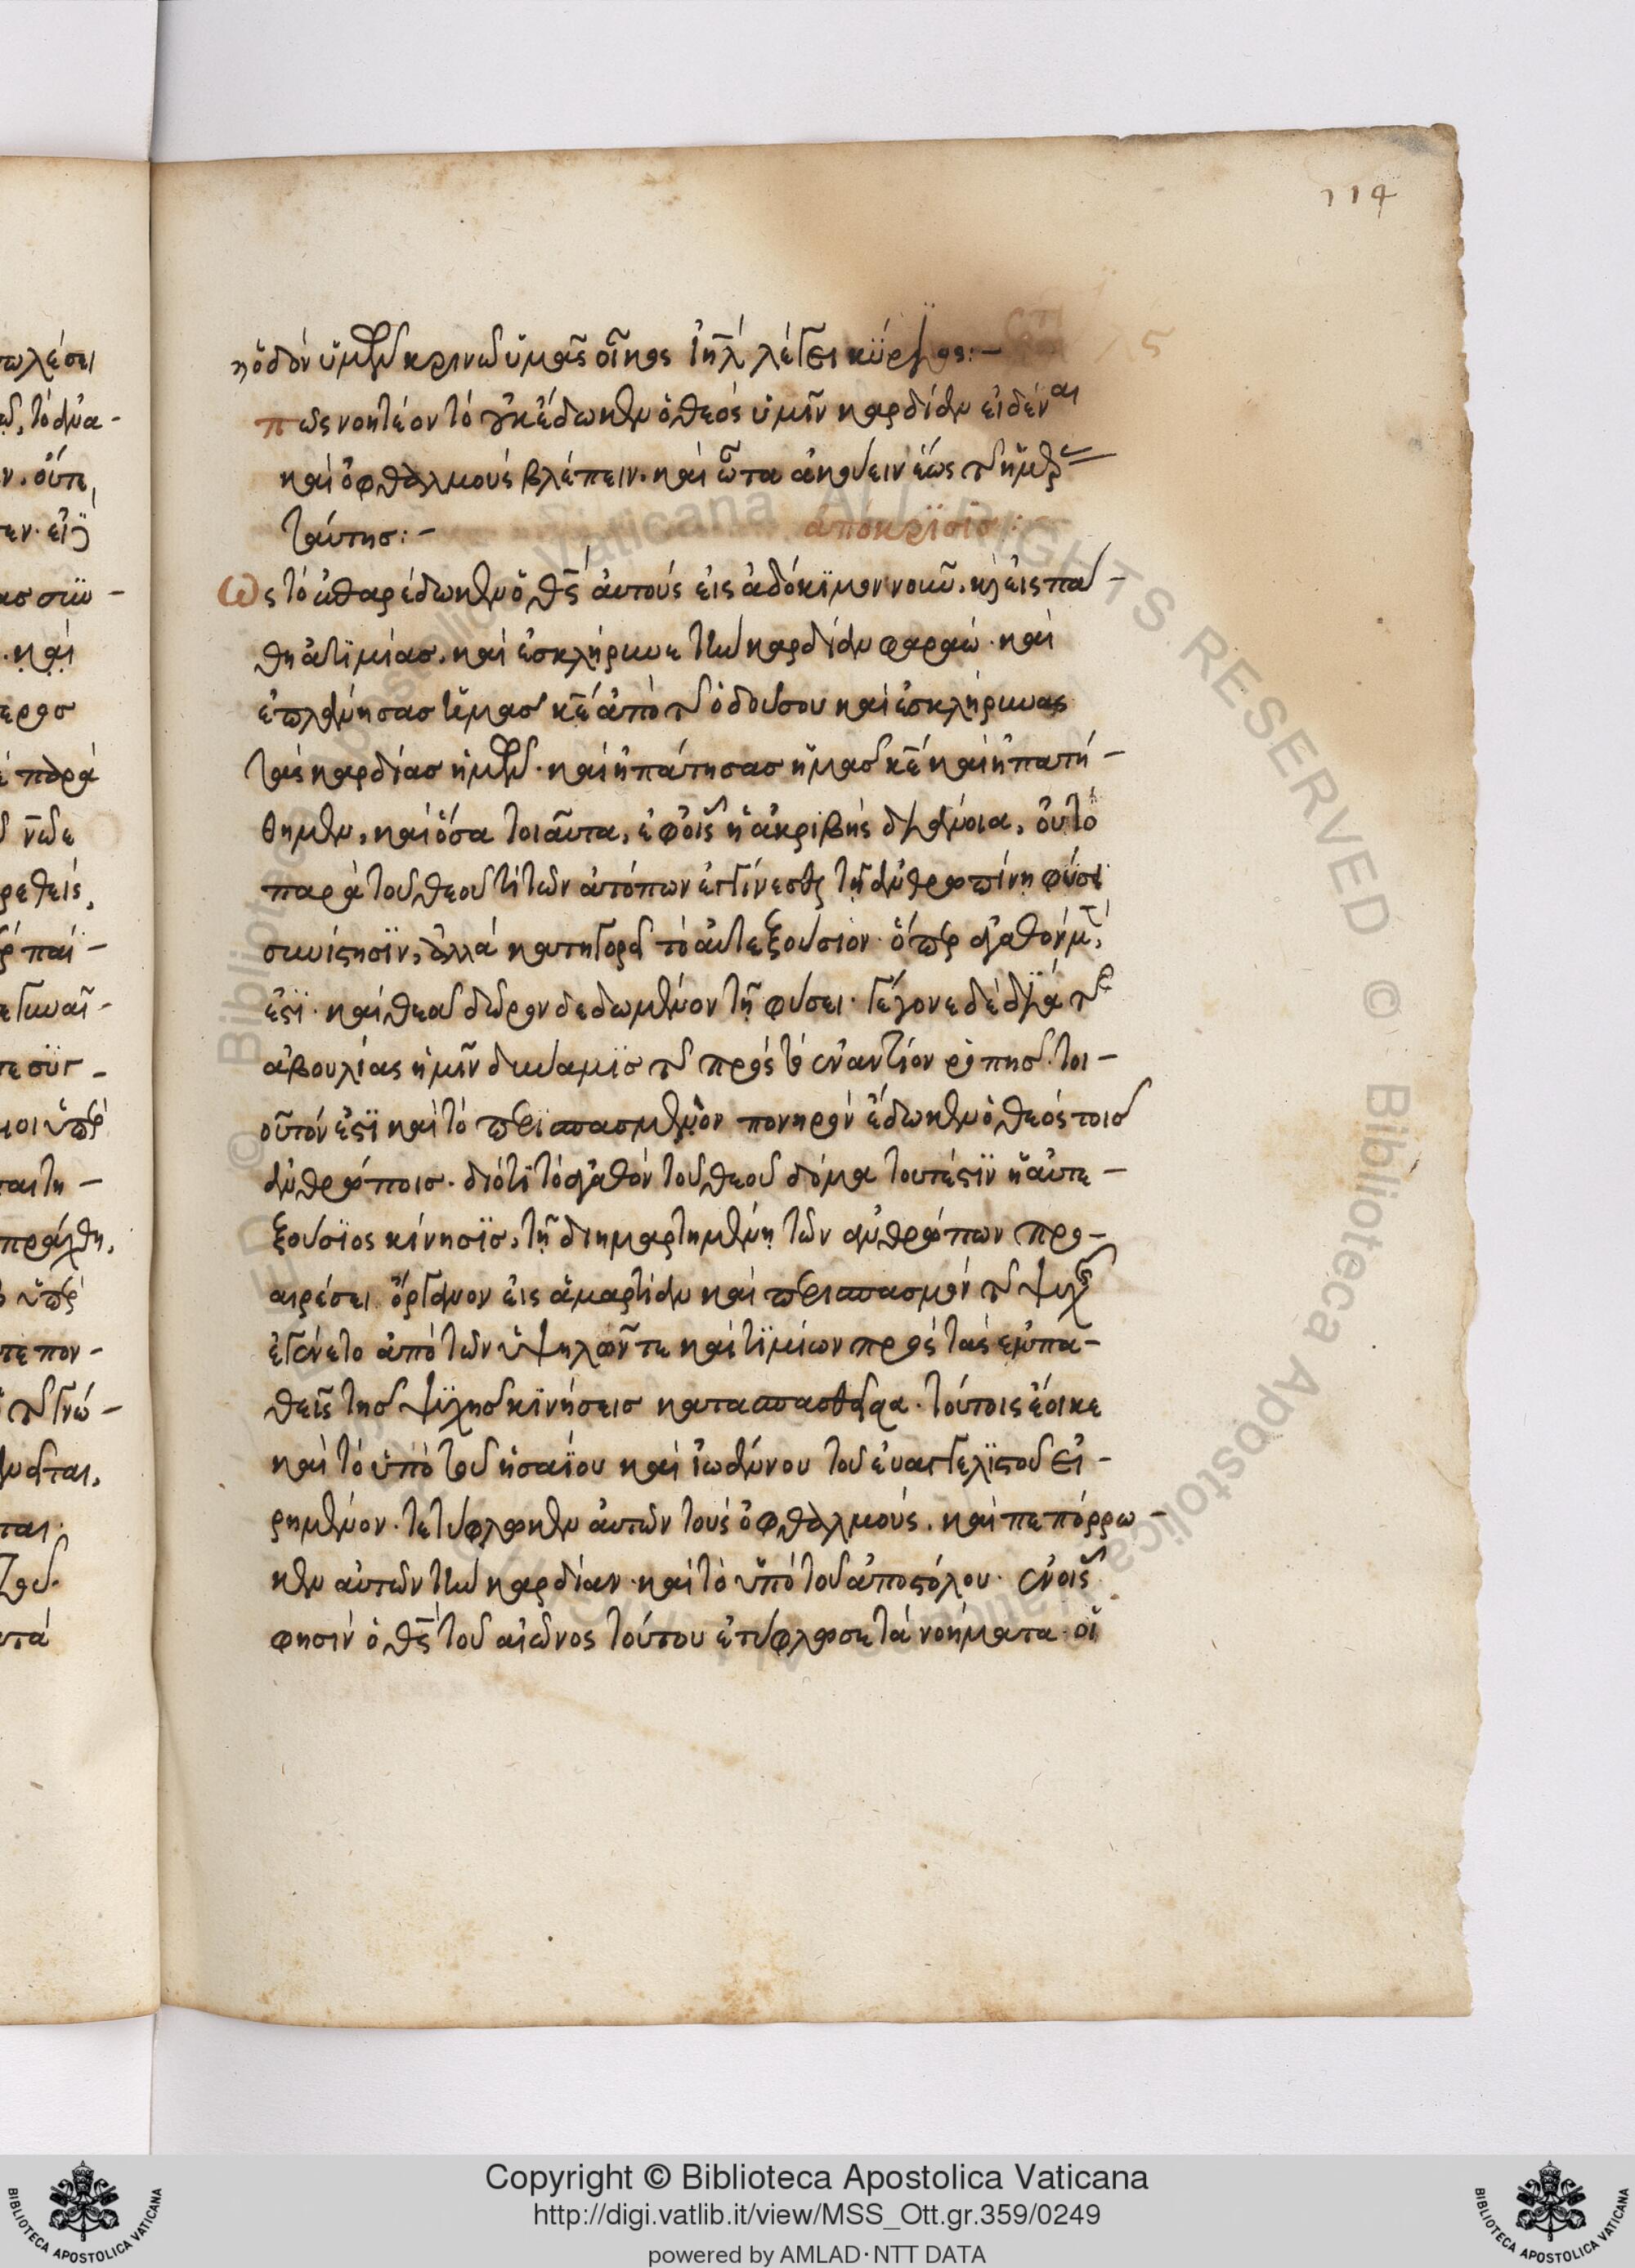 114
ἡ ὁδὸν ὑμῶν κρινῶ ὑμᾶς οἶκος ἰηλ λέγει κύριος:–
πῶς νοητέον τὸ οὐκ ἔδωκεν ὁ θεὸς ὑμῖν καρδίαν εἰδέναι
καὶ ὀφθαλμοὺς βλέπειν. καὶ ὦτα ἀκούειν ἕως τῆς ἡμέρας
ταύτης:–
ἀπόκρισις:
Ὡς τὸ παρέδωκεν ὁ θς αὐτοὺς εἰς ἀδόκιμον νοῦν. καὶ εἰς πά–
θη ἀτιμίας. καὶ ἐσκλήρυνε τὴν καρδίαν φαραώ. καὶ
ἐπλάνησας ἡμας κε ἀπὸ τῆς ὁδοῦ σου καὶ ἐσκλήρυνας
τὰς καρδίας ἡμῶν. καὶ ἠπάτησας ἡμας κε καὶ ἠπατή–
θημεν, καὶ ὅσα τοιαῦτα, ἐφ οἷς ἡ ἀκριβὴς διάνοια, οὐ τὸ
παρὰ τοῦ θεοῦ τί τῶν ἀτόπων ἐγγίνεσθαι τῇ ἀνθρωπίνῃ φύσει
συνίστησιν, ἀλλὰ κατηγορεῖ τὸ αὐτεξούσιον. ὅπερ ἀγαθὸν μέν
ἐστι. καὶ θεοῦ δῶρον δεδωμένον τῇ φύσει. γέγονε δὲ διὰ τῆς
ἀβουλίας ἡμῖν δυναμις τῆς πρὸς τὸ ἐναντίον ῥοπης. τοι–
οῦτόν ἐστι καὶ τὸ περισπασμὸν πονηρὸν ἔδωκεν ὁ θεὸς τοις
ἀνθρώποις. διότι τὸ ἀγαθὸν τοῦ θεοῦ δόμα τουτέστιν ἡ αὐτε–
ξούσιος κίνησις, τῇ διημαρτημένῃ τῶν ἀνθρώπων προ–
αιρέσει ὄργανον εἰς ἁμαρτίαν καὶ περισπασμὸν τῆς ψυχῆς
ἐγένετο ἀπὸ τῶν ὑψηλῶν τε καὶ τιμίων πρὸς τὰς ἐμπα–
θεῖς της ψυχης κινήσεις κατασπασθεῖσα. τούτοις ἔοικε
καὶ τὸ ὑπὸ τοῦ ἠσαΐου καὶ ἰωάννου τοῦ εὐαγγελιστοῦ εἰ–
ρημένον. τετύφλωκεν αὐτῶν τοὺς ὀφθαλμούς. καὶ πεπόρρω–
κεν αὐτῶν τὴν καρδίαν. καὶ τὸ ὑπὸ τοῦ ἀποστόλου. ἐν οἷς
φησὶν ὁ θς τοῦ αἰῶνος τούτου ἐτύφλωσε τὰ νοήματα. οἱ
Copyright © Biblioteca Apostolica Vaticana
http://digi.vatlib.it/view/MSS_Ott.gr.359/0249
powered by AMLAD·NTT DATA